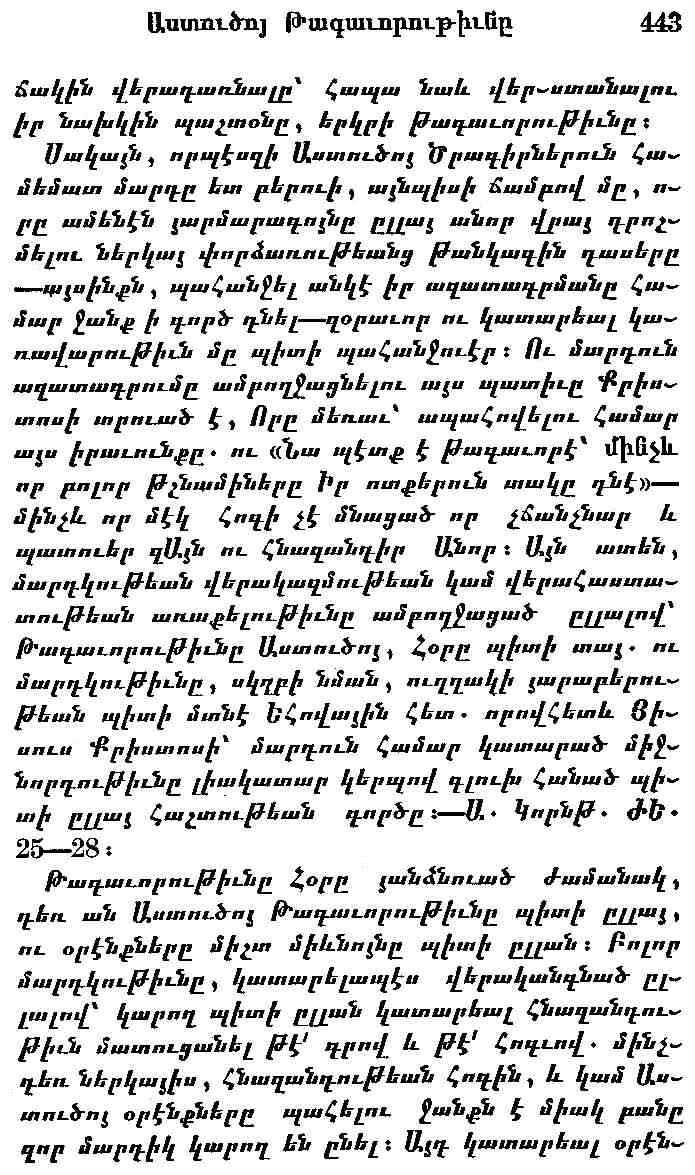 Աստուծոյ Թագաւորութիւնը 443
ճակին վերադառնալը՝ Հապա նաև վեր-ստանալու
իր նախկին պաշտօնը, երկրի թագաւորութիւնը։
Սակայն, որպէսզի Աստուծոյ Ծրագիրներուն Հա-
մեմատ մարդը ետ բերուի, այնպիսի ճամբով մը, ո-
րը ամենէն յարմարագոյնը ըլլայ անոր վրայ դրոշ-
մելու ներկայ փորձառութեանց թանկագին դասերը
—այսինքն, պահանջել անկէ իր ազատագրմանը հա-
մար ջանք ի գործ դնել—զօրաւոր ու կատարեալ կա-
ռավարութիւն մը պիտի պահանջուէր։ Ու մարդուն
ազատագրումը ամբողջացնելու այս պատիւը Քրիս-
տոսի տրուած է, Որը մեռաւ՝ ապահովելու համար
այս իրաւունքը. ու «Նա պէտք է թագաւորէ՝ մինչև
որ բոլոր թշնամիները Իր ոտքերուն տակը դնէ»—
մինչև որ մէկ հոգի չէ մնացած որ չճանչնար և
պատուեր զԱյն ու հնազանդիր Անոր։ Այն ատեն,
մարդկութեան վերակազմութեան կամ վերահաստա-
տութեան առաքելութիւնը ամբողջացած ըլլալով՝
Թագաւորութիւնը Աստուծոյ, Հօրը պիտի տայ. ու
մարդկութիւնը, սկղբի նման, ուղղակի յարաբերու-
թեան պիտի մտնէ Եհովային հետ. որովհետև Յի-
սուս Քրիստոսի՝ մարդուն համար կատարած միջ-
նորդութիւնը լիակատար կերպով գլուխ հանած պի-
տի ըլլայ հաշտութեան գործը։—Ա. Կորնթ. ԺԵ.
25—28։
Թագաւորութիւնը Հօրը յանձնուած ժամանակ,
դեռ ան Աստուծոյ Թագաւորութիւնը պիտի ըլլայ,
ու օրէնքները միշտ միևնոյնը պիտի ըլլան։ Բոլոր
մարդկութիւնը, կատարելապէս վերականգնած ըլ-
լալով՝ կարող պիտի ըլլան կատարեալ հնազանդու-
թիւն մատուցանել թէ՛ գրով և թէ՛ հոգւով. մինչ-
դեռ ներկայիս, հնազանդութեան հոգին, և կամ Աս-
տուծոյ օրէնքները պահելու ջանքն է միակ բանը
զոր մարդիկ կարող են ընել։ Այդ կատարեալ օրէն-